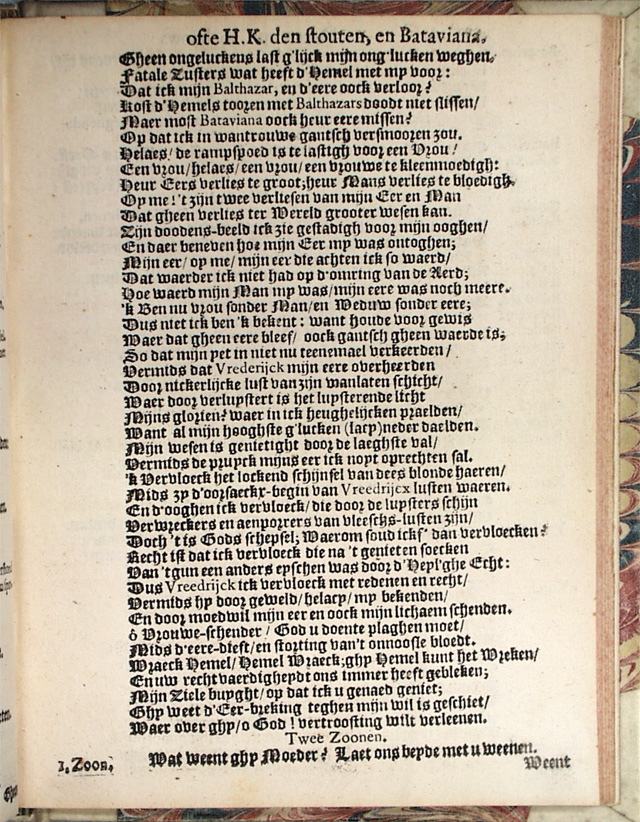 ofte H.K. den stouten, en Bataviana.
Gheen ongeluckens last g'lijck mijn ong'lucken weghen.
Fatale Zusters wat heeft d'Hemel met my voor:
Dat ick mijn Balthazar, en d'eere oock verloor?
Kost d'Hemels tooren met Balthazars doodt niet slissen/
Maer most Bataviana oock heur eere missen?
Op dat ick in wantrouwe gantsch versmooren zou.
Helaes/ de rampspoed is te lastigh voor een Vrou!
Een vrou/helaes/een vrou/een vrouwe te kleenmoedigh:
Heur Eers verlies te groot; heur Mans verlies te bloedigh.
Op me! 't zijn twee verliesen van mijn Eer en Man
Dat gheen verlies ter Wereld grooter wesen kan.
Zijn doodens-beeld ick zie gestadigh voor mijn ooghen/
En daer beneven hoe mijn Eer my was ontoghen;
Mijn eer/op me/mijn eer die achten ick so waerd/
Dat waerder ick niet had op d'omring van de Aerd;
Hoe waerd mijn Man my was/mijn eere was noch meere.
'k Ben nu vrou sonder Man/en Weduw sonder eere;
Dus niet ick ben 'k bekent: want houde voor gewis
Waer dat gheen eere bleef/ oock gantsch gheen waerde is;
So dat mijn yet in niet nu teenemael verkeerden/
Vermids dat Vrederijck mijn eere overheerden
Door nickerlijcke lust van zijn wanlaten schicht/
Waer door verluystert is het luysterende licht
Mijns glorien: waer in ick heughelijcken praelden/
Want al mijn hooghste g'lucken (lacy) neder daelden.
Mijn wesen is gentetight door de laeghste val/
Vermids de pruyck mijns eer ick noyt oprechten sal.
'k Vervloeck het lockend schijnsel van dees blonde haeren/
Mids zy d'oorsaeckx-begin van Vreedrijcx lusten waeren.
En d'ooghen ick vervloeck/die door de luysters schijn
Verweckers en aenporrers van vleeschs-lusten zijn/
Doch 't is Gods schepsel; Waerom soud icks' dan vervloecken?
Recht ist dat ick vervloeck die na 't genieten soecken
Van 't gun een anders eyschen was door d'Heyl'ghe Echt:
Dus Vreedrijck ick vervloeck met redenen en recht/
Vermids hy door geweld/helacy/my bekenden/
En door moedwil mijn eer en oock mijn lichaem schenden.
ô Vrouwe-schender/ God u doente plaghen moet/
Mids d'eere-dieft/en storting van't onnoosle bloedt.
Wraeck Hemel/Hemel Wraeck; ghy Hemel kunt het Wreken/
En uw rechtvaerdigheydt ons immer heeft gebleken;
Mijn Ziele buyght/op dat ick u genaed geniet;
Ghy weet d'Eer-breking teghen mijn wil is geschiet/
Waer over ghy/o God! vertroosting wilt verleenen.
Twee Zoonen.
1. Zoon. Wat weent ghy Moeder? Laet ons beyde met u weenen.
Weent